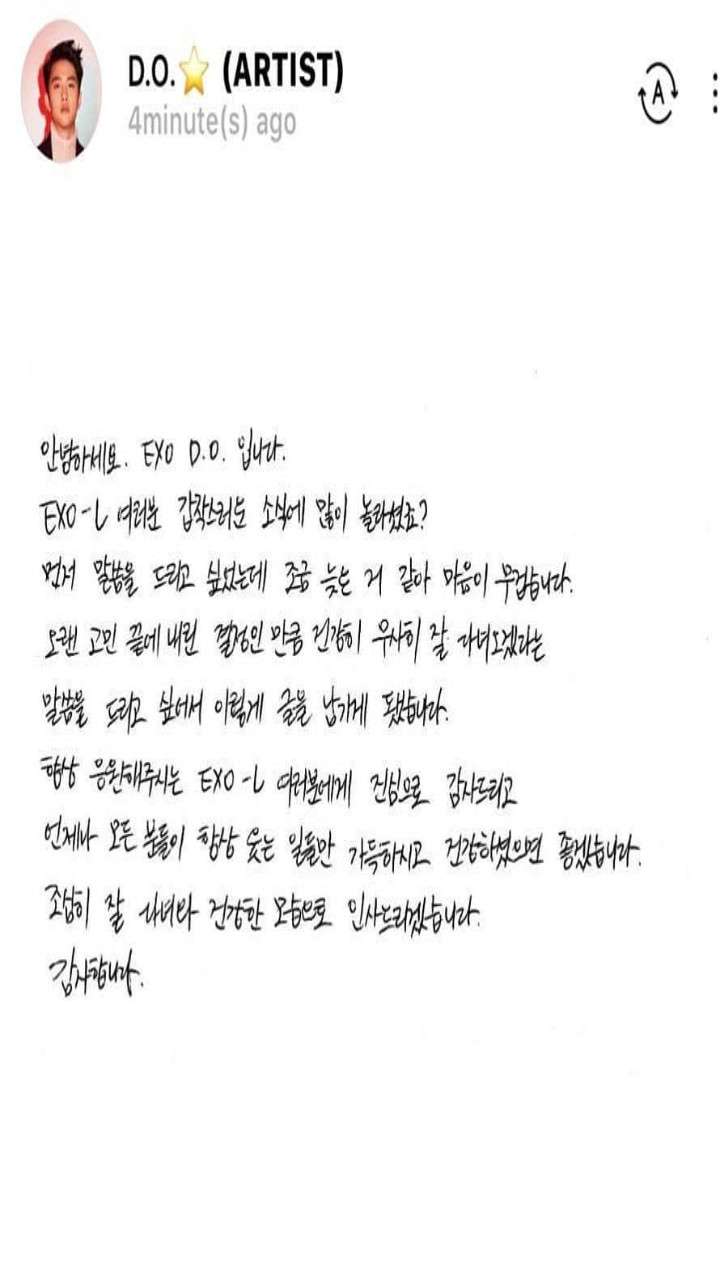 D.O.⭐ (ARTIST)
4minute(s) ago
A
안녕하세요. EXO D.O. 입니다.
EXO-L 여러분 갑작스러운 소식에 많이 놀라셨죠?
먼저 말씀을 드리고 싶었는데 조금 늦은 거 같아 마음이 무겁습니다.
오랜 고민 끝에 내린 결정인 만큼 건강히 무사히 잘 다녀오겠다는
말씀을 드리고 싶어서 이렇게 글을 남기게 됐습니다.
항상 응원해주시는 EXO-L 여러분에게 진심으로 감사드리고
언제나 모든 분들이 항상 웃는 일들만 가득하시고 건강하셨으면 좋겠습니다.
조심히 잘 다녀와 건강한 모습으로 인사드리겠습니다.
감사합니다.